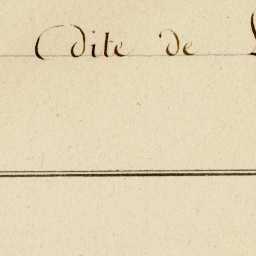 Dite de